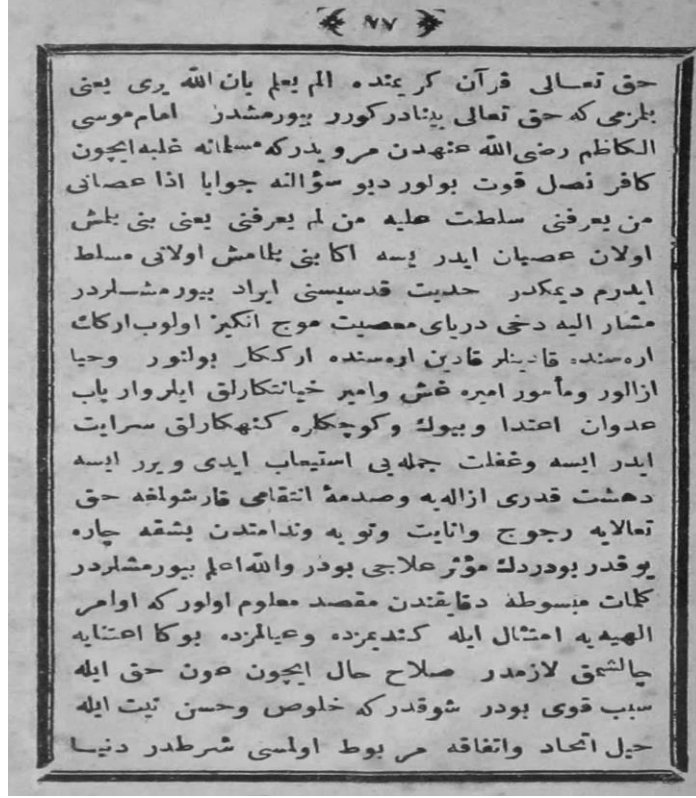 ٩٧
حق تعالی قرآن کریمنده الم یعلم بان الله یری یعنی
بلزمی که حق تعالی بینادر کورر بیورمشدر امام موسی
الکاظم رضی الله عنهدن مرویدرکه مسلمانه غلبه ایچون
کافر نصل قوت بولور دیو سؤالنه جوابا اذا عصانی
من یعرفنی سلطت علیه من لم یعرفنی یعنی بنی بلمش
اولان عصیان ایدر یسه اکا بنی بلمامش اولانی مسلط
ایدرم دیمکدر حدیث قدسیسنی ایراد بیورمشلردر
مشار الیه دخی دریای معصیت موج انکیز اولوب ارکك
اره سنده قادینلر قادین اره سنده ارککلر بولنور وحیا
ازالور ومأمور امیره غش وامیر خیانتکارلق ایلر وارباب
عدوان اعتدا وبیوك وکوچکلره کنهکارلق سرایت
ایدر ایسه وغفلت جمله یی استیعاب ایدی ویرر ایسه
دهشت قدری ازاله یه وصدمۀ انتقامی قارشولغه حق
تعالایه رجوع وانابت وتوبه وندامتدن بشقه چاره
یوقدر بودردك مؤثر علاجی بودر والله اعلم بیورمشلردر
کلمات مبسوطه دقایقندن مقصد معلوم اولور که اوامر
الهیه یه امتثال ایله کندیمزده وعیالمزده بوکا اعتنایه
چالشمق لازمدر صلاح حال ایچون عون حق ایله
سبب قوی بودر شوقدرکه خلوص وحسن نیت ایله
حبل اتحاد واتفاقه مربوط اولمسی شرطدر دنیا